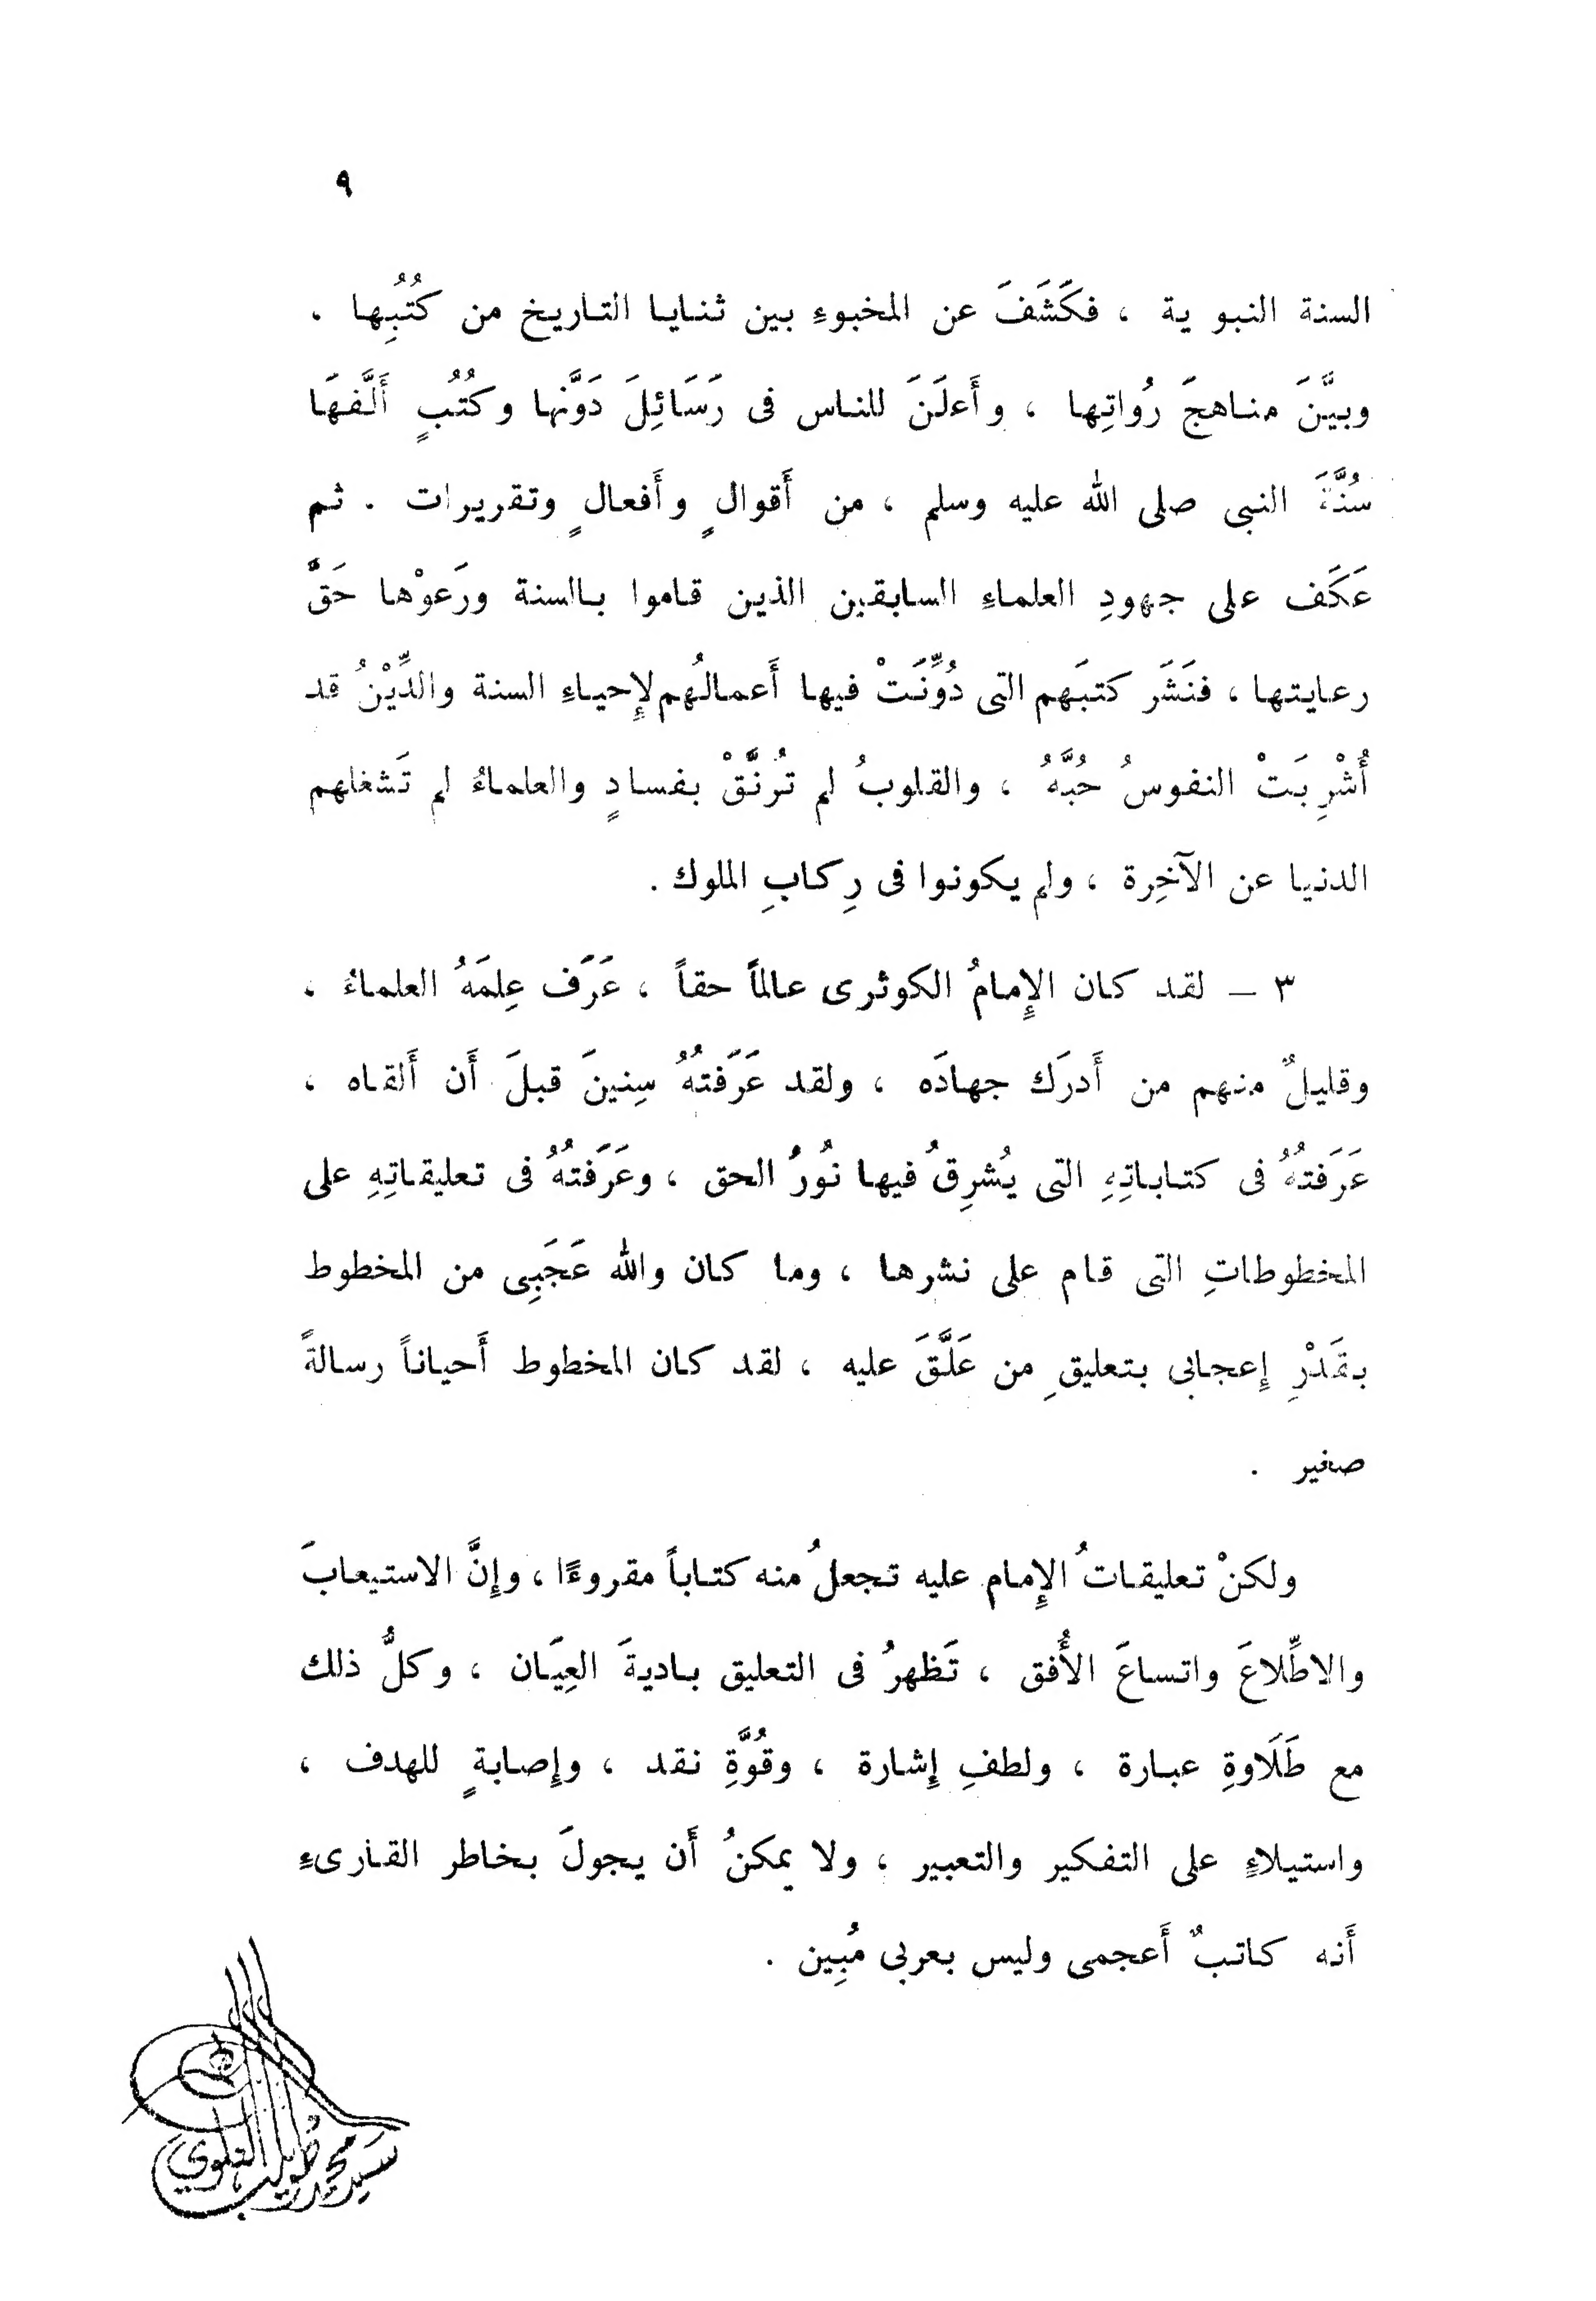 ٩
السنة النبوية ، فكَشَفَ عن المخبوءِ بين ثنايا التاريخ من كُتُبِها .
وبيَّنَ مناهجَ رُواتِها ، وأَعلَنَ للناس فى رَسَائِلَ دَوَّنها وكُتُبٍ أَلَّفهَا
سُنَّةَ النبى صلى الله عليه وسلم ، من أَقوالٍ وأَفعالٍ وتقريرات . ثم
عَكَف على جهودِ العلماءِ السابقين الذين قاموا بالسنة ورَعوْها حَقَّ
رعايتها ، فنَشَر كتبَهم التى دُوِّنَتْ فيها أَعمالُهم لإِحياءِ السنة والدِّيْنُ قد
أُشْرِبَتْ النفوسُ حُبَّهُ ، والقلوبُ لم تُرنَّقْ بفسادٍ والعلماءُ لم تَشغلهم
الدنيا عن الآخِرة ، ولم يكونوا فى رِكابِ الملوك .
٣ – لقد كان الإِمامُ الكوثرى عالماً حقاً ، عَرَف عِلمَهُ العلماءُ ،
وقليلٌ منهم من أَدرَك جهادَه ، ولقد عَرَفتُهُ سِنينَ قبلَ أَن أَلقاه ،
عَرَفتُهُ فى كتاباتِهِ التى يُشرِقُ فيها نُورُ الحق ، وعَرَفتُهُ فى تعليقاتِهِ على
المخطوطاتِ التى قام على نشرها ، وما كان والله عَجَبِى من المخطوط
بقَدْرِ إعجابى بتعليقِ من عَلَّقَ عليه ، لقد كان المخطوط أَحياناً رسالةً
صغير .
ولكنْ تعليقاتُ الإِمام عليه تجعلُ منه كتاباً مقروءًا ، وإِنَّ الاستيعابَ
والاطِّلاعَ واتساعَ الأُفق ، تَظهرُ فى التعليق باديةَ العِيَان ، وكلُّ ذلك
مع طَلَاوةِ عبارة ، ولطفِ إِشارة ، وقُوَّةِ نقد ، وإِصابةٍ للهدف ،
واستيلاءٍ على التفكير والتعبير ، ولا يمكنُ أَن يجولَ بخاطر القارىءِ
أَنه كاتبٌ أَعجمى وليس بعربى مُبِين .